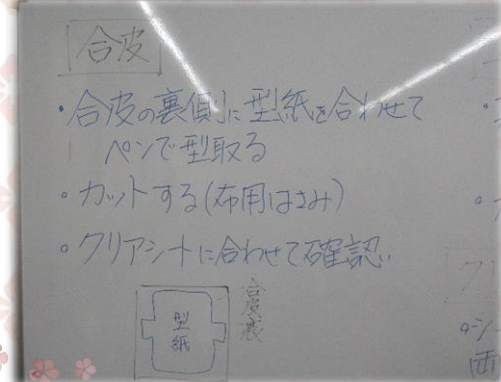 合皮
・合皮の裏側に型紙を合わせて
ペンで型取る
・カットする(布用はさみ)
・クリアシートに合わせて確認
型紙
合皮裏